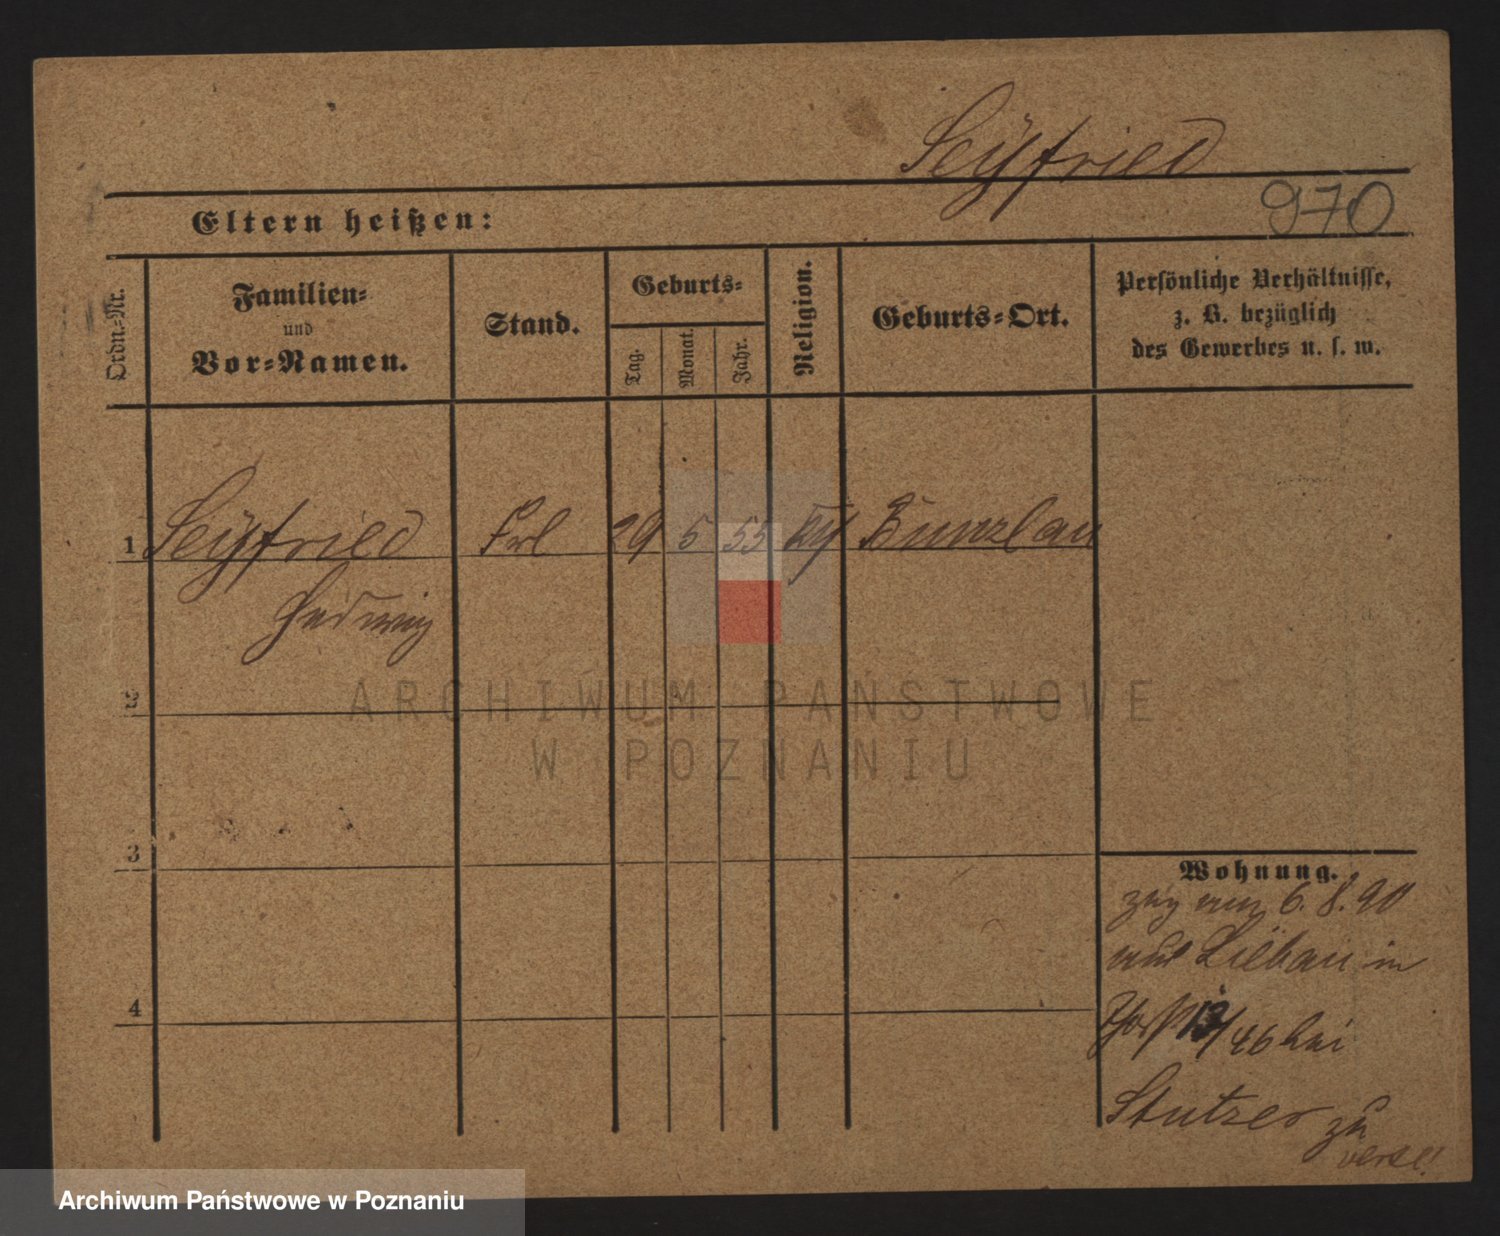 Seÿfried
970
Eltern heißen:
Ordn.-Nr.
Familien-
und
Vor-Namen.
Stand.
Geburts-
Tag.
Monat.
Jahr.
Religion.
Geburts-Ort.
Persönliche Verhältnisse,
z. B. bezüglich
des Gewerbes u. s. w.
1 Seÿfried Frl 29 5 55 Bunzlau
Hedwig
2
3
4
Wohnung.
zug am 6. 8. 90
aus Liebau in
13/46 bei
Stutzer zu
ARCHIWUM PAŃSTWOWE
W POZNANIU
Archiwum Państwowe w Poznaniu